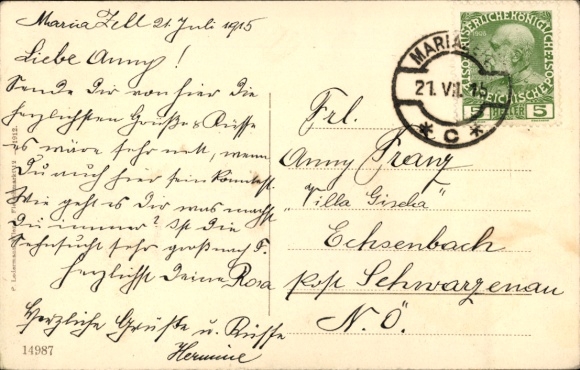 Maria Zell 21. Juli 1915
Liebe Anny!
Sende Dir von hier die
herzlichsten Grüße & Küsse
es wäre sehr nett, wenn
Du auch hier sein könntest.
Wie geht es Dir was machst
Du immer? Ist die
Sehnsucht sehr groß nach
Herzlichst Deine Rosa
Herzliche Grüße u. Küsse
Hermine
14987
P. Ledermann, Wien 1912.
MARIA
21. VII. 15
* C *
5 HELLER 5
1908
Frl.
Anny Franz
"Villa Gischa"
Echsenbach
Post Schwarzenau
N.Ö.